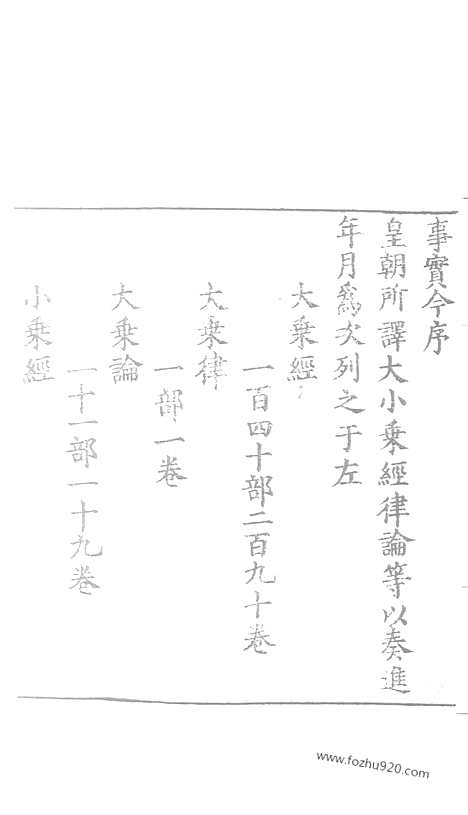 事實今序
皇朝所譯大小乘經律論等以奏進
年月爲次列之于左
大乘經
一百四十部二百九十卷
大乘律
一部一卷
大乘論
一十一部一十九卷
小乘經
www.fozhu920.com